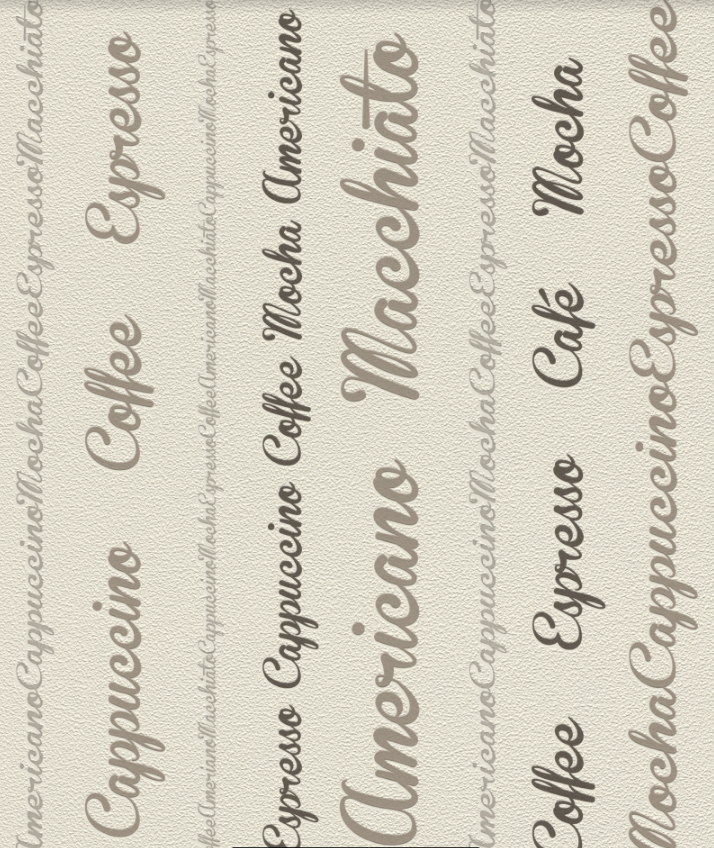 AmericanoCappuccinoMochaCoffeeEspressoMacchiato
Cappuccino Coffee Espresso
ffeeAmericanoMacchiatoCappuccinoMochaEspressoCoffeeAmericanoMacchiatoCappuccinoMochaEspresso
Espresso Cappuccino Coffee Mocha Americano
Americano Macchiato
AmericanoCappuccinoMochaCoffeeEspressoMacchiato
Coffee Espresso Café Mocha
MochaCappuccinoEspressoCoffee